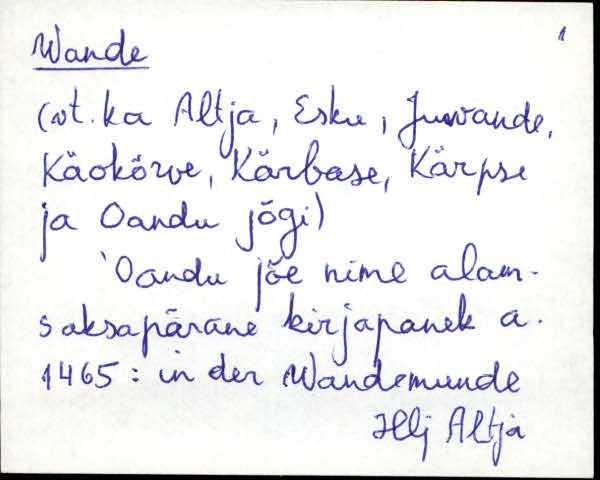 1
Wande
(vt. ka Altja, Esku, Juwande,
Käokõrve, Kärbase, Kärpse
ja Oandu jõgi)
'Oandu jõe nime alam-
saksapärane kirjapanek a.
1465: in der Wandemunde
Hlj Altja